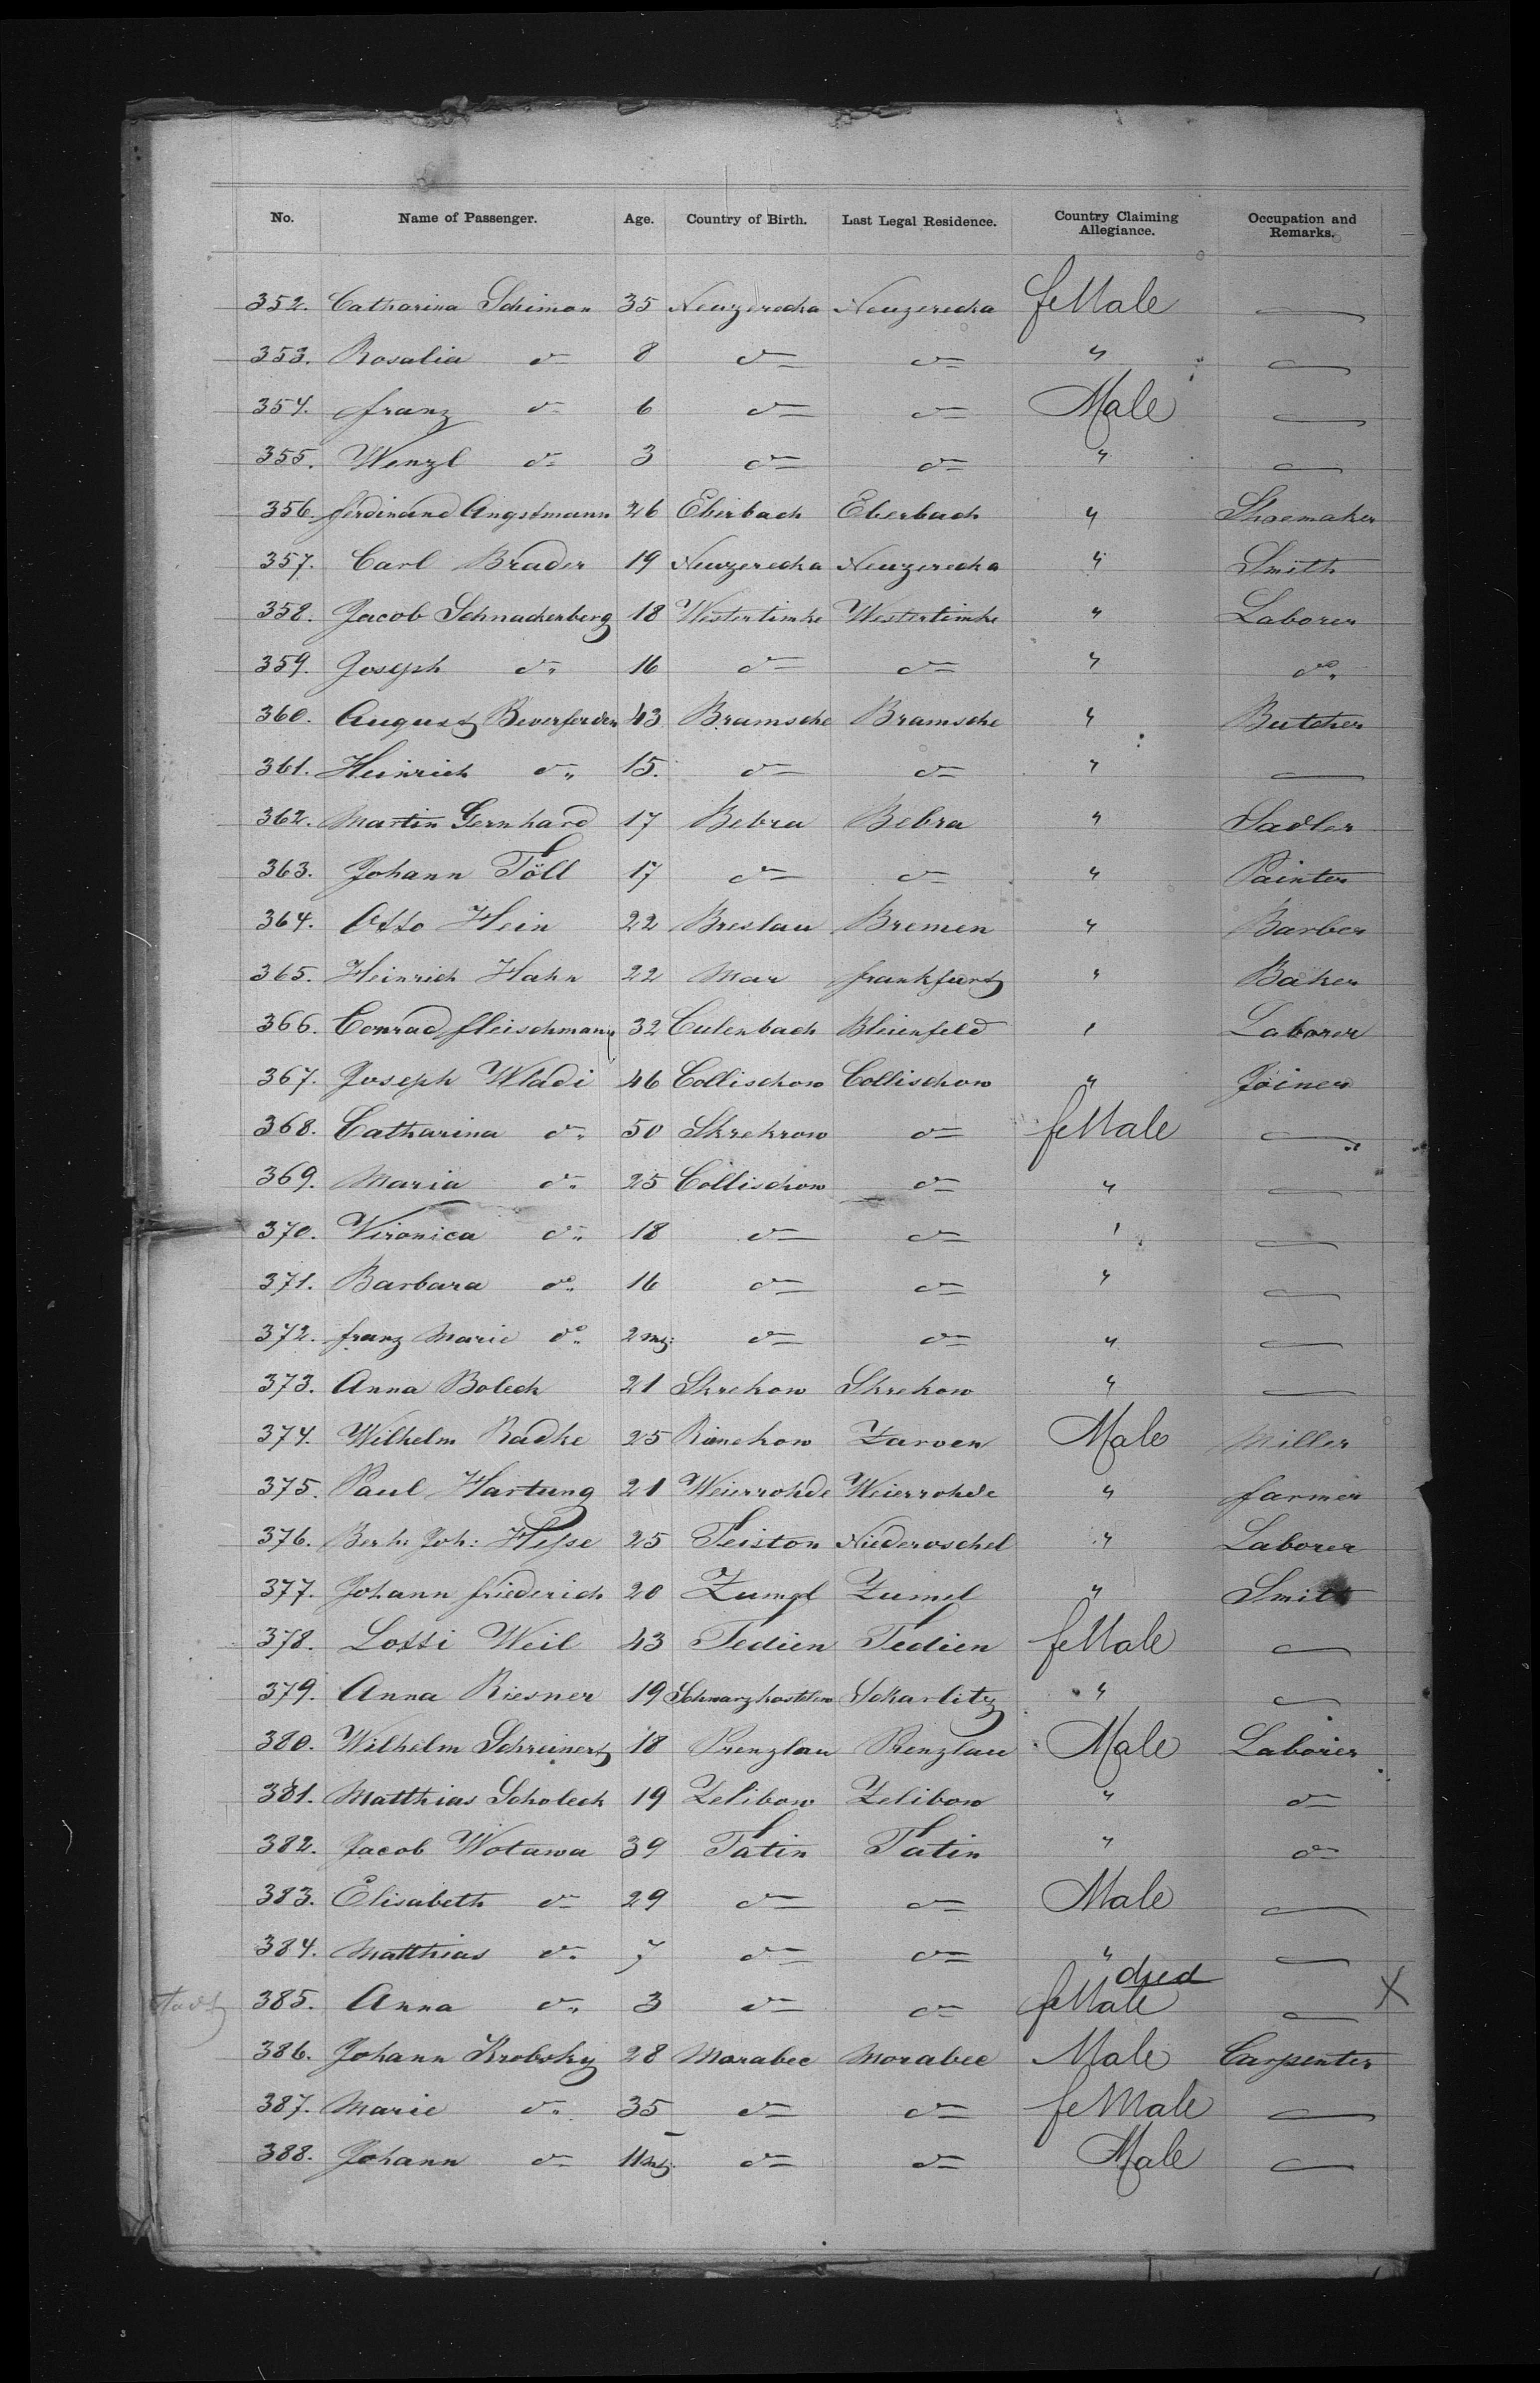 No. Name of Passenger. Age. Country of Birth. Last Legal Residence. Country Claiming Allegiance. Occupation and Remarks.
352. Catharina Schiman 35 Neuzerecka Neuzerecka feMale —
353. Rosalia do 8 do do " —
354. franz do 6 do do Male —
355. Wenzl do 3 do do " —
356. ferdinand Angstmann 26 Eberbach Eberbach " Shoemaker
357. Carl Brader 19 Neuzerecka Neuzerecka " Smith
358. Jacob Schnackenberg 18 Westertimke Westertimke " Laborer
359. Joseph do 16 do do " do
360. August Beverforden 43 Bramsche Bramsche " Butcher
361. Heinrich do 15. do do " —
362. Martin Gernhard 17 Bebra Bebra " Sadler
363. Johann Töll 17 do do " Painter
364. Otto Hein 22 Breslau Bremen " Barber
365. Heinrich Hahn 22 Mar frankfurt " Baker
366. Conrad fleischmann 32 Culenbach Bleienfeld " Laborer
367. Joseph Wladi 46 Collischow Collischow " Joiner
368. Catharina do 50 Skrekrow do feMale —
369. Maria do 25 Collischow do " —
370. Vironica do 18 do do " —
371. Barbara do 16 do do " —
372. franz Marie do 2 do do " —
373. Anna Boleck 21 Skrekow Skrekow " —
374. Wilhelm Radke 25 Zarven Male Miller
375. Paul Hartung 21 Weierrohde Weierrohde " farmer
376. Berh: Joh: Hesse 25 Teiston Niederoschel " Laborer
377. Johann friederich 20 Zumel Zumel " Smith
378. Lotti Weil 43 Tedien Tedien feMale —
379. Anna Riesner 19 Schwarzkostelow Skarlitz " —
380. Wilhelm Schreinert 18 Prenzlau Prenzlau Male Laborer
381. Matthias Scholeck 19 Zelibow Zelibow " do
382. Jacob Wotawa 39 Tatin Tatin " do
383. Elisabeth do 29 do do Male —
384. Matthias do 7 do do " —
died
385. Anna do 3 do do feMale — X
386. Johann Krobsky 28 Marabec Morabec Male Carpenter
387. Marie do 35 do do feMale —
388. Johann do 11 do do Male —